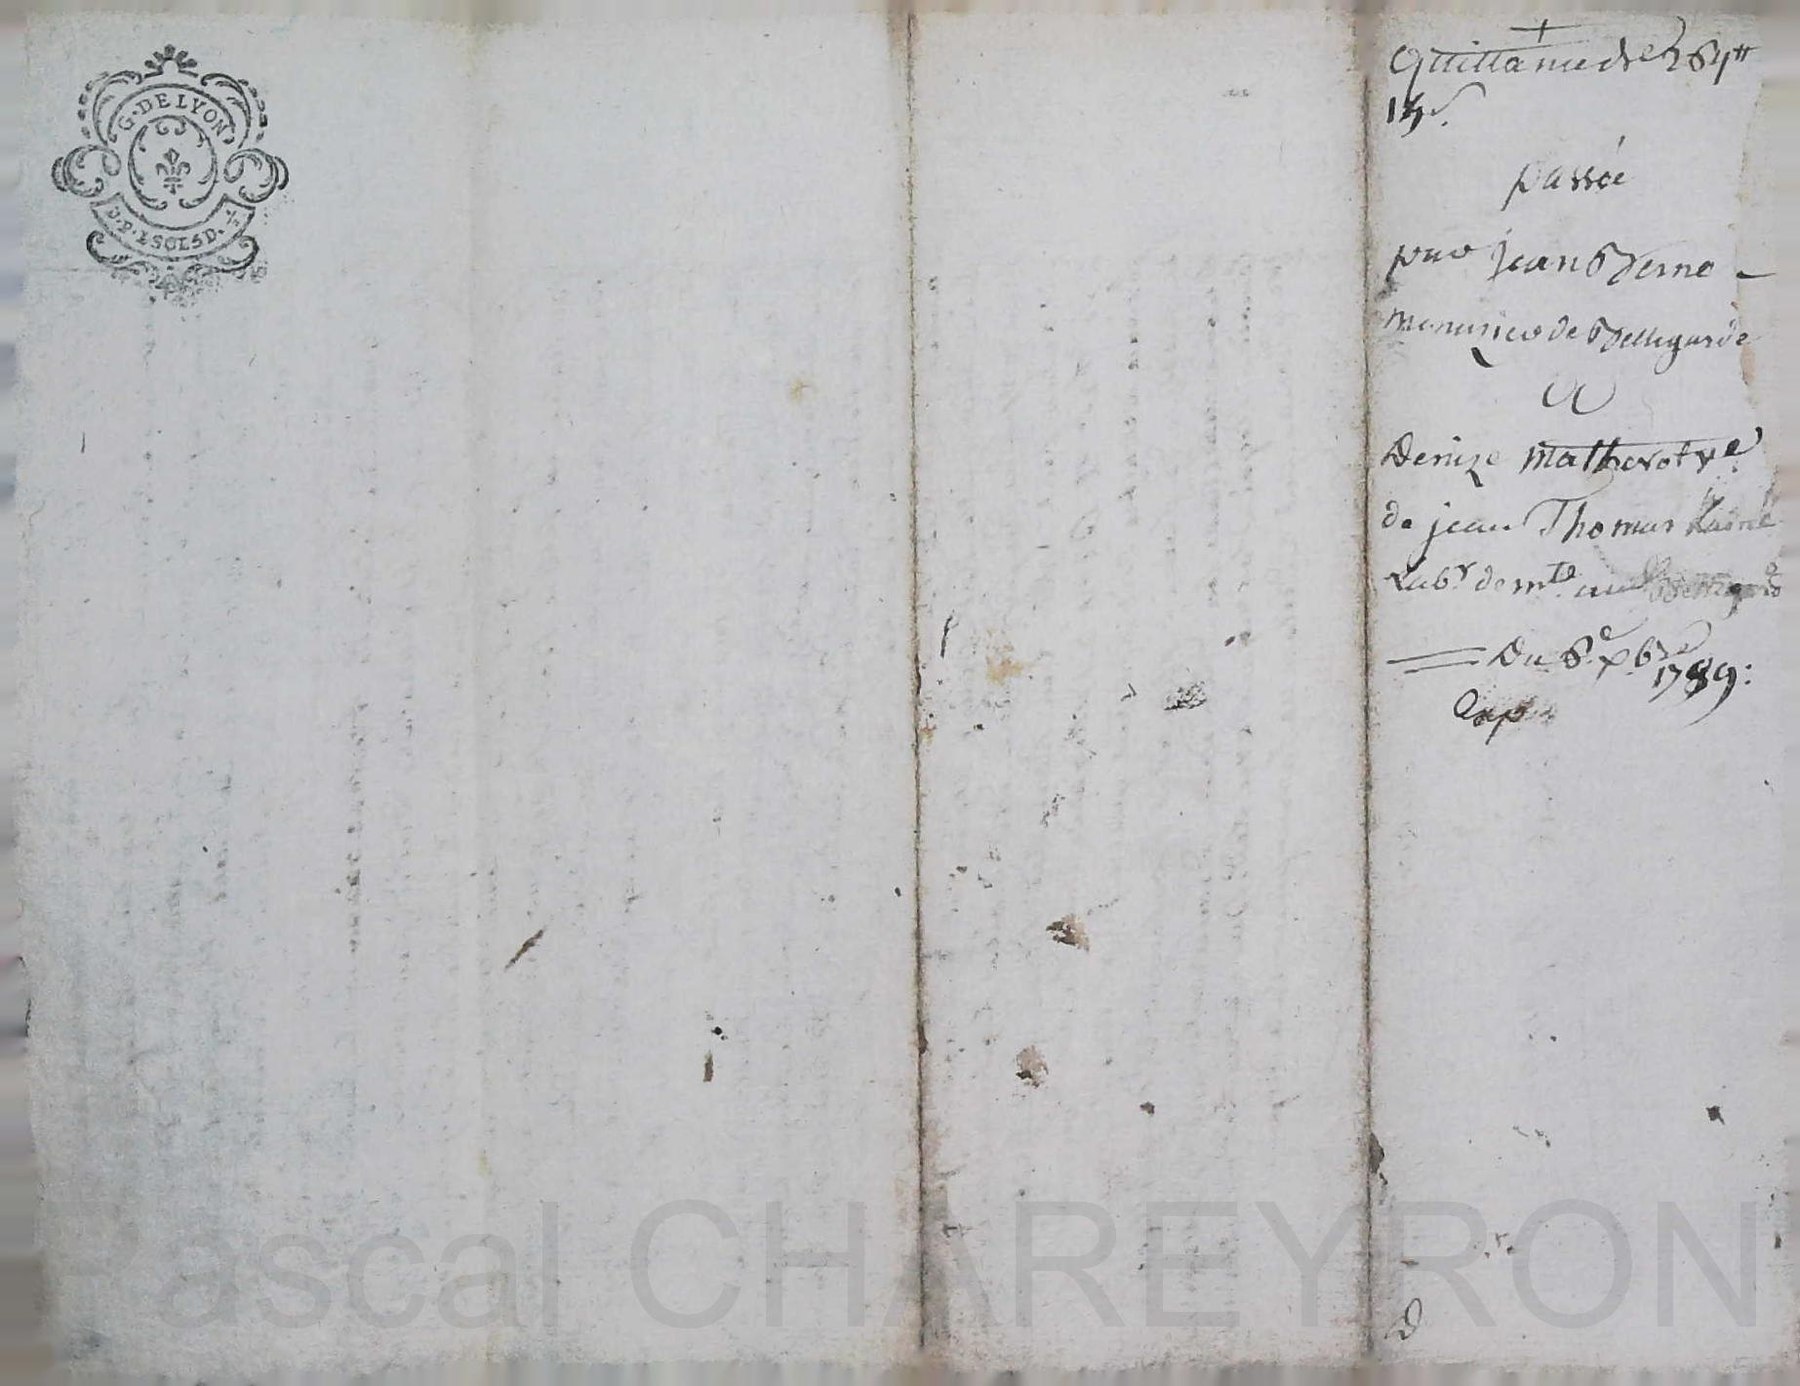 G. DE LYON
D.P. 2 SOLS D.
Quittance de 264ᵗᵗ
15ˢ.
passée
par jean Berne
menuzier de Bellegarde
a
Denize Matherot vᵉ
de jean Thomas
Labʳ de mᵗᵉ au Bellegarde
Du 6ᵉ xbʳᵉ
1789:
Exp
Pascal CHAREYRON